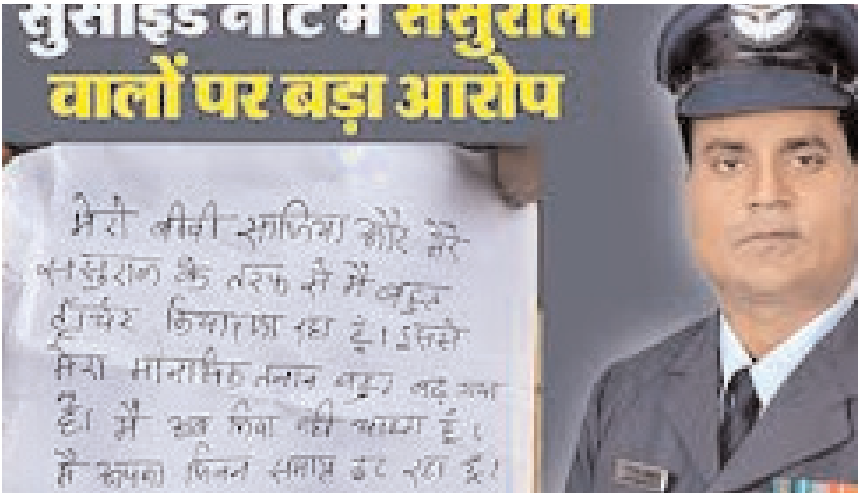 सुसाइड नोट में ससुराल
वालों पर बड़ा आरोप
मेरी बीवी साजिया और मेरे
ससुराल के तरफ से मै बहुत
टॉर्चर किया जा रहा हूं। इससे
मेरा मानसिक तनाव बहुत बढ़ गया
है। मै अब जिना नही चाहता हूं।
मै अपना जिवन समाप्त कर रहा हूं।